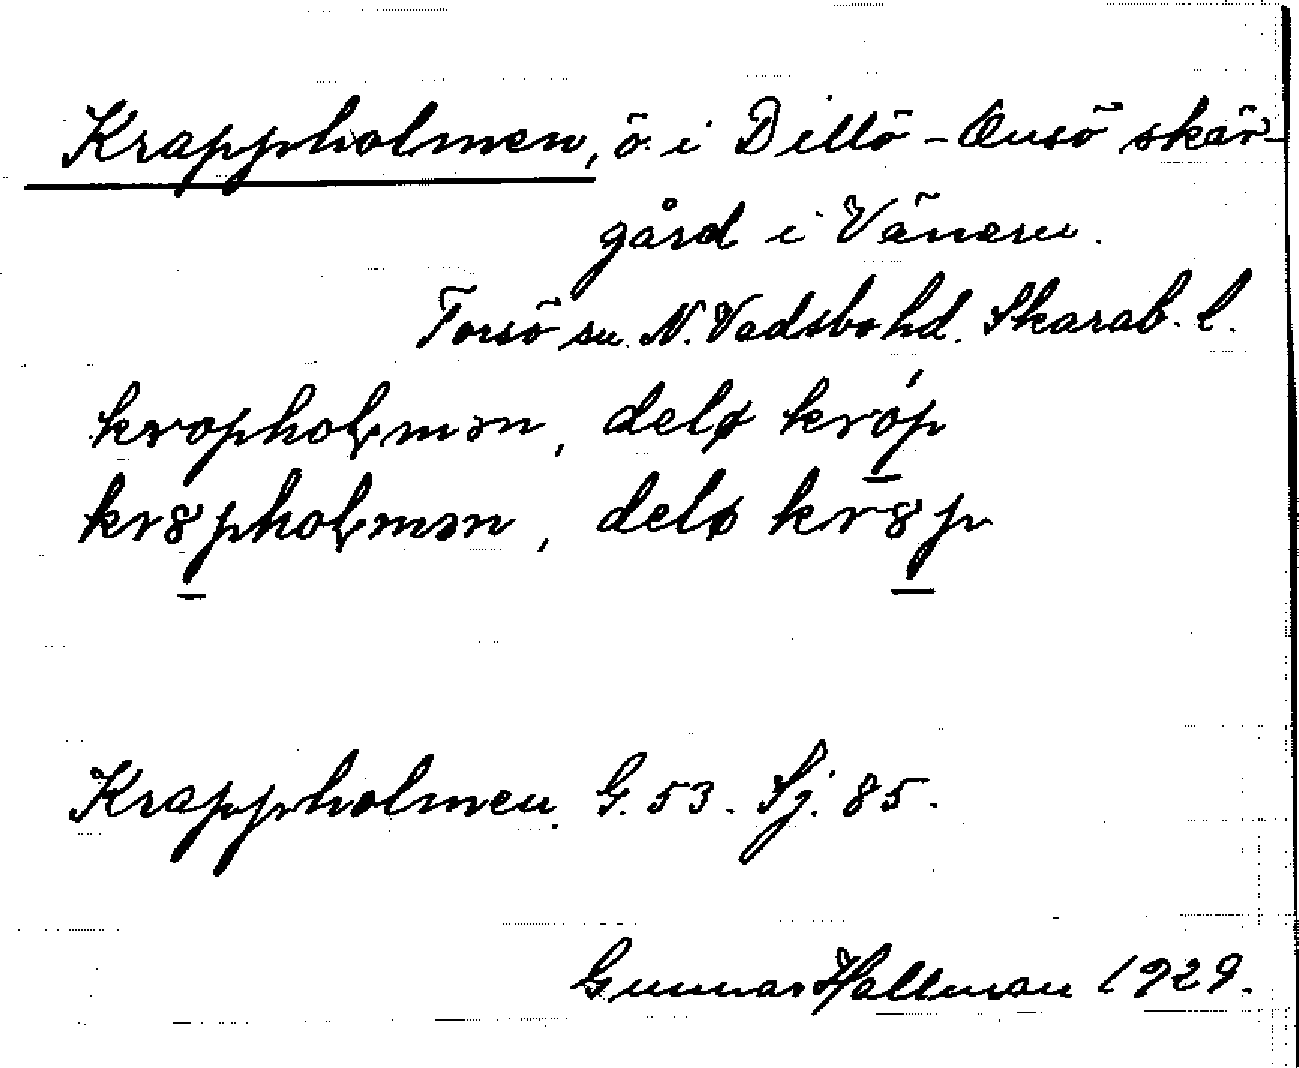 Krappholmen, ö. i Dillö - Onsö skär-
gård i Vänern.
Torsö sn. N. Vadsbo hd. Skarab. l.
krapholmən, delø kráp
kr8pholmən, delø kr8p
Krappholmen. G. 53. Sj. 85.
Gunnar Hallman 1929.